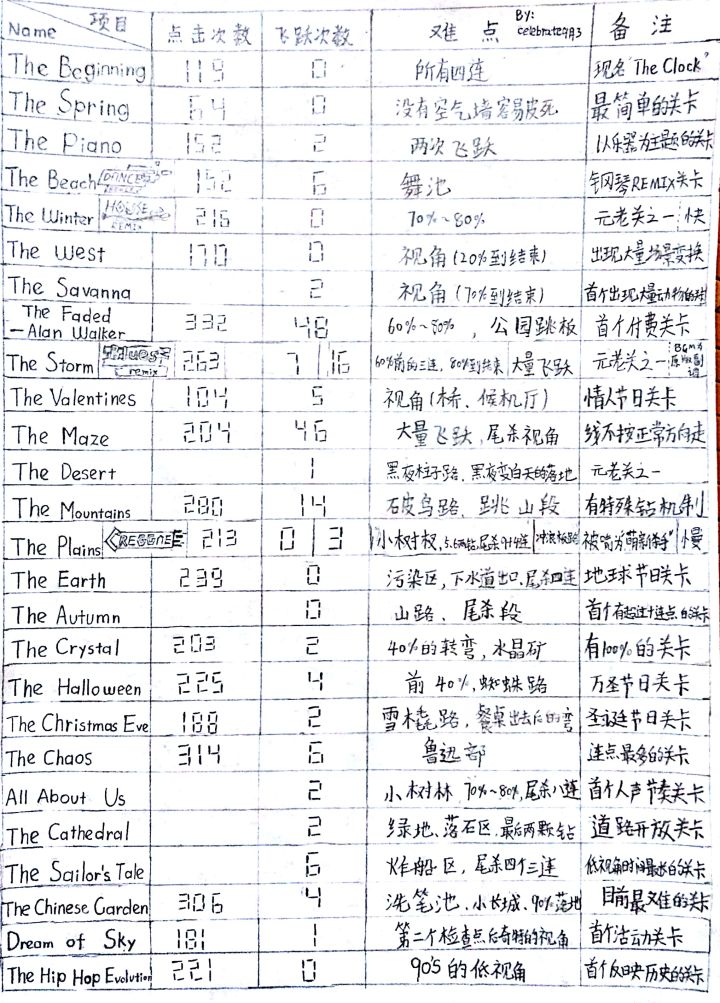 Name 项目 点击次数 飞跃次数 难点 By: celebrate9月3 备注
The Beginning 119 0 所有四连 现名"The Clock"
The Spring 64 0 没有空气墙容易皮死 最简单的关卡
The Piano 152 2 两次飞跃 以乐器为主题的关卡
The Beach DANCE REMIX 152 6 舞池 钢琴REMIX关卡
The Winter HOUSE REMIX 216 0 70%~80% 元老关之一 快
The West 170 0 视角(20%到结束) 出现大量场景变换
The Savanna 2 视角(70%到结束) 首个出现大量动物的
The Faded —Alan Walker 332 48 60%~80%, 公园跳板 首个付费关卡
The Storm remix 263 7 16 60%前的三连, 80%到结束 大量飞跃 元老关之一 BGM为原版副调
The Valentines 104 5 视角(桥、候机厅) 情人节日关卡
The Maze 204 46 大量飞跃,尾杀视角 线不按正常方向走
The Desert 1 黑夜柱子路、黑夜变白天的落地 元老关之一
The Mountains 280 14 石皮鸟路、跳山段 有特殊钻机制
The Plains REGGAE 213 0 3 小树杈, 尾杀 被喻为"萌新杀手" 慢
The Earth 239 0 污染区,下水道出口,尾杀四连 地球节日关卡
The Autumn 10 山路、尾杀段 首个有超过十连点的关卡
The Crystal 203 2 40%的转弯,水晶矿 有100%的关卡
The Halloween 225 4 前40%,蜘蛛路 万圣节日关卡
The Christmas Eve 188 2 雪橇路,餐桌出去后的弯 圣诞节日关卡
The Chaos 314 6 鲁迅部 连点最多的关卡
All About Us 2 小树林 70%~80%,尾杀八连 首个人声节奏关卡
The Cathedral 2 绿地、落石区、最后两颗钻 道路开放关卡
The Sailor's Tale 6 炸船区,尾杀四个三连 低视角时间最长的关卡
The Chinese Garden 306 4 洗笔池、小长城、90%落地 目前最难的关卡
Dream of Sky 181 1 第二个检查点后奇特的视角 首个活动关卡
The Hip Hop Evolution 221 0 90'S的低视角 首个反映历史的关卡